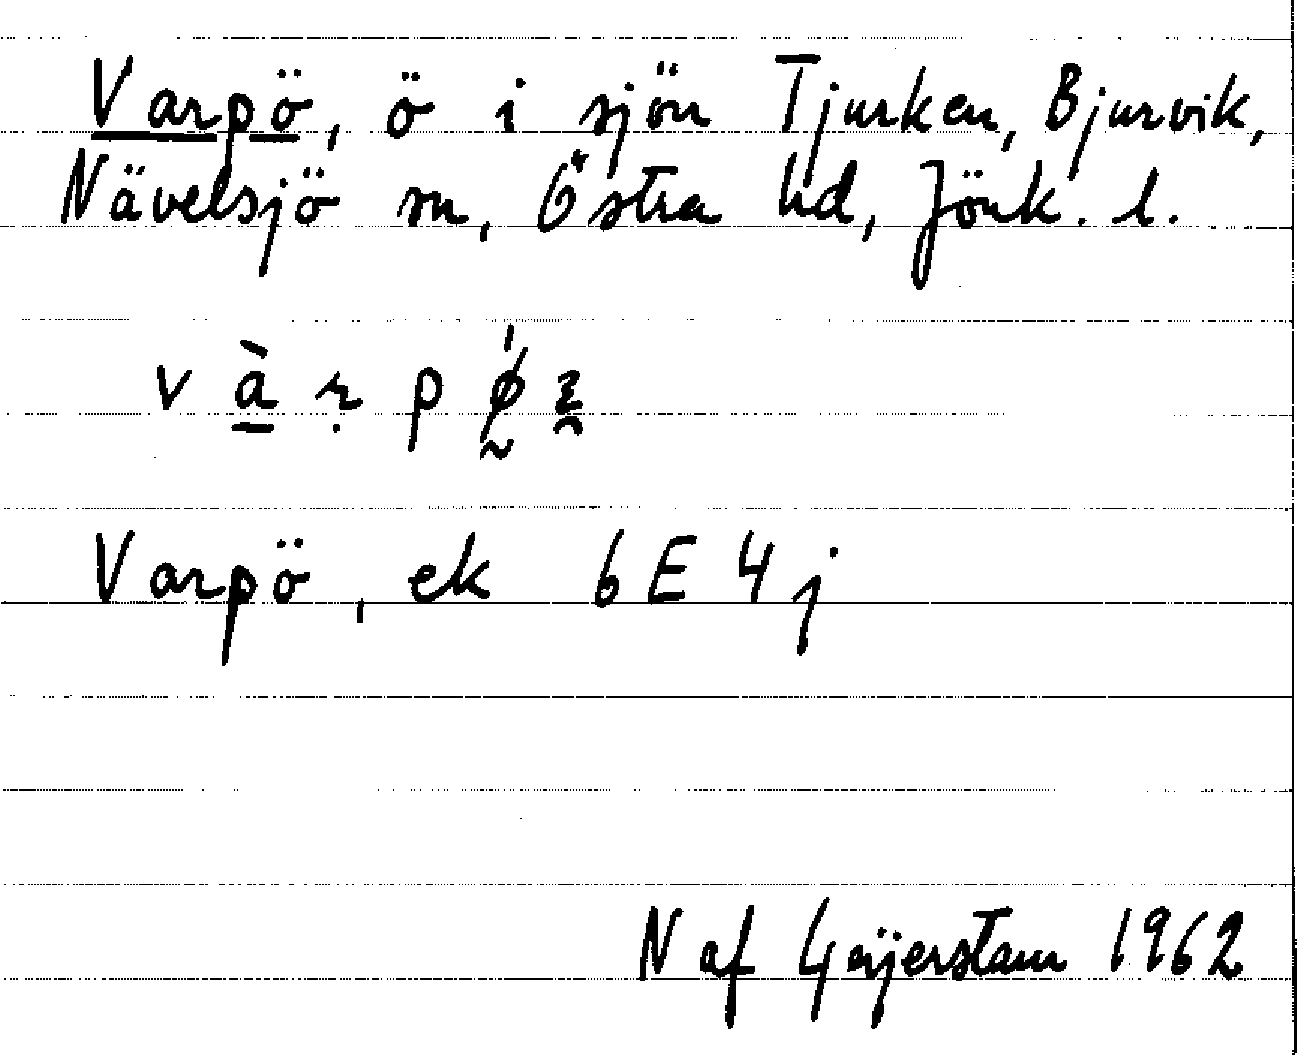 Varpö, ö i sjön Tjurken, Bjurvik,
Nävelsjö sn, Östra hd, Jönk. l.
Varpö, ek 6E 4j
N af Geijerstam 1962